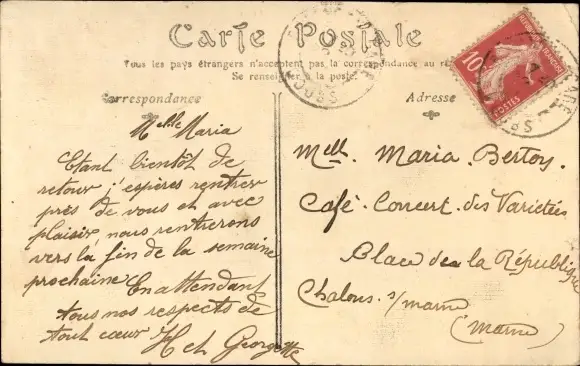 Carte Postale
Tous les pays étrangers n'acceptent pas la correspondance au
Se renseigner à la poste
Correspondance
Adresse
Melle Maria
Etant bientôt de
retour j'espères rentrer
près de vous et avec
plaisir nous rentrerons
vers la fin de la semaine
prochaine En attendant
tous nos respects de
tout cœur H et Georgette
Melle. Maria. Bertoy.
Café. Concert. des Varietées
Place de la République
Chalons s/marne
(Marne)
10
POSTES